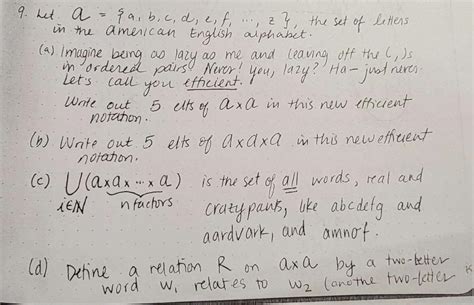 9. Let a = {a, b, c, d, e, f, ..., z}, the set of letters
in the American English alphabet.
(a) Imagine being as lazy as me and leaving off the (, )s
in ordered pairs. Never! You, lazy? Ha - just never.
Let's call you efficient.
Write out 5 elts of a x a in this new efficient
notation.
(b) Write out 5 elts of a x a x a in this new efficient
notation.
(c) ⋃ (a x a x ... x a) is the set of all words, real and
i∈N n factors crazy pants, like abcdefg and
aardvark, and amnot.
(d) Define a relation R on a x a by a two-letter
word w₁ relates to w₂ (another two-letter